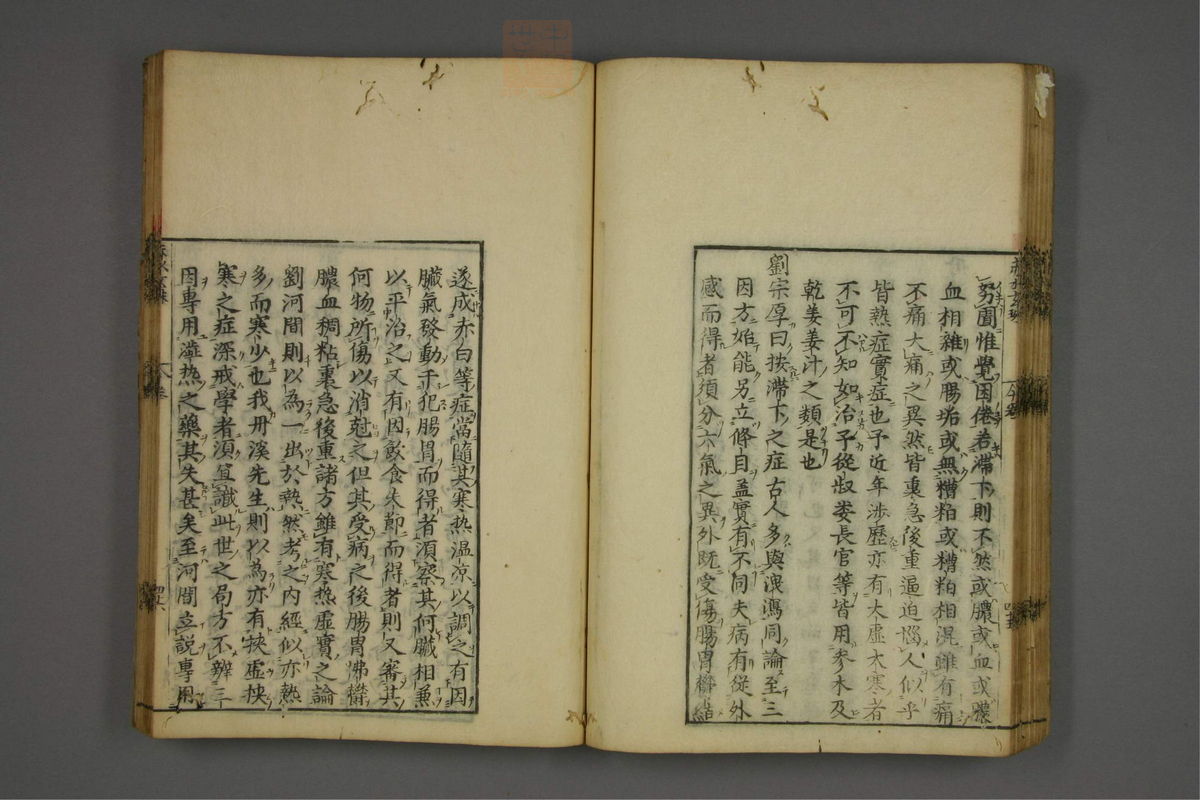 努圊惟覺困倦若滯下則不然或膿或血或膿
血相雜或腸垢或無糟粕或糟粕相混雖有痛
不痛大痛之異然皆裏急後重逼迫惱人似乎
皆熱症實症也予近年渉歴亦有大虛大寒者
不可不知如治予從叔婁長官等皆用參朮及
乾姜姜汁之類是也
劉宗厚曰按滯下之症古人多與洩瀉同論至三
因方始能另立條目盖實有不同夫病有從外
感而得者須分六氣之異外既受傷腸胃欎結
遂成赤白等症當隨其寒热温凉以調之有因
臓氣發動干犯腸胃而得者湏察其何臓相兼
以平治之又有因飲食失節而得者則又審其
何物所傷以消尅之但其受病之後腸胃怫欎
膿血稠粘裏急後重諸方雖有寒热虛實之論
劉河間則以為一出於熱然考之内經似亦熱
多而寒少也我丹溪先生則以為亦有挾虛挾
寒之症深戒學者湏宜識此世之局方不辨三
因專用澁热之藥其失甚矣至河間立説專用